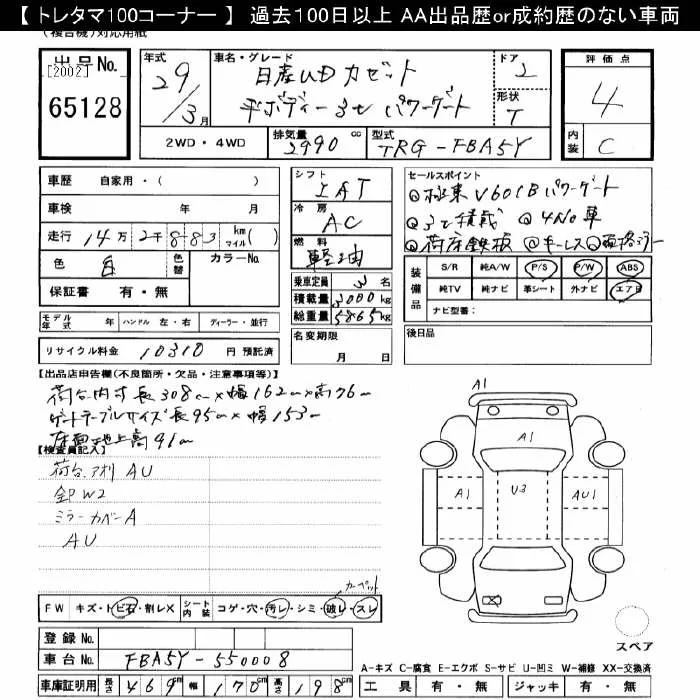 【 トレタマ100コーナー 】 過去100日以上 AA出品歴or成約歴のない車両
(複合機)対応用紙
出品No.
[2002]
65128
年式
29/3月
車名・グレード
日産UDカゼット
平ボディー3t パワーゲート
ドア
2
形状
T
評価点
4
内装
C
2WD・4WD
排気量
2990cc
型式
TRG-FBA5Y
車歴 自家用・( )
車検 年 月
走行 14万2千883 km マイル( )
色 白 色替 カラーNo.
保証書 有・無
シフト
IAT
冷房
AC
燃料
軽油
乗車定員 3名
積載量 3000kg
総重量 5865kg
セールスポイント
◎極東V601Bパワーゲート
◎3t積載 ◎4No車
◎荷床鉄板 ◎キーレス◎電格ミラー
装備品
S/R 純A/W P/S P/W ABS
純TV 純ナビ 革シート 外ナビ エアB
ナビ型番:
モデル年式 年 ハンドル 左・右 ディーラー・並行
リサイクル料金 10310 円 預託済
名変期限
月 日
後日品
【出品店申告欄(不良箇所・欠品・注意事項等)】
荷台内寸長308cm×幅162cm×高76cm
ゲートテーブルサイズ長95cm×幅153cm
床面地上高91cm
【検査員記入】
荷台アオリ AU
全P W2
ミラーカバーA
AU
A1
A1
A1
U3
AU1
X
カーペット
FW キズ・トビ石・割レX シート内装 コゲ・穴・汚レ・シミ・破レ・スレ
スペア
登録No.
車台No. FBA5Y-550008
車庫証明用 長さ 469cm 幅 170cm 高さ 198cm
A-キズ C-腐食 E-エクボ S-サビ U-凹ミ W-補修 XX-交換済
工具 有・無 ジャッキ 有・無